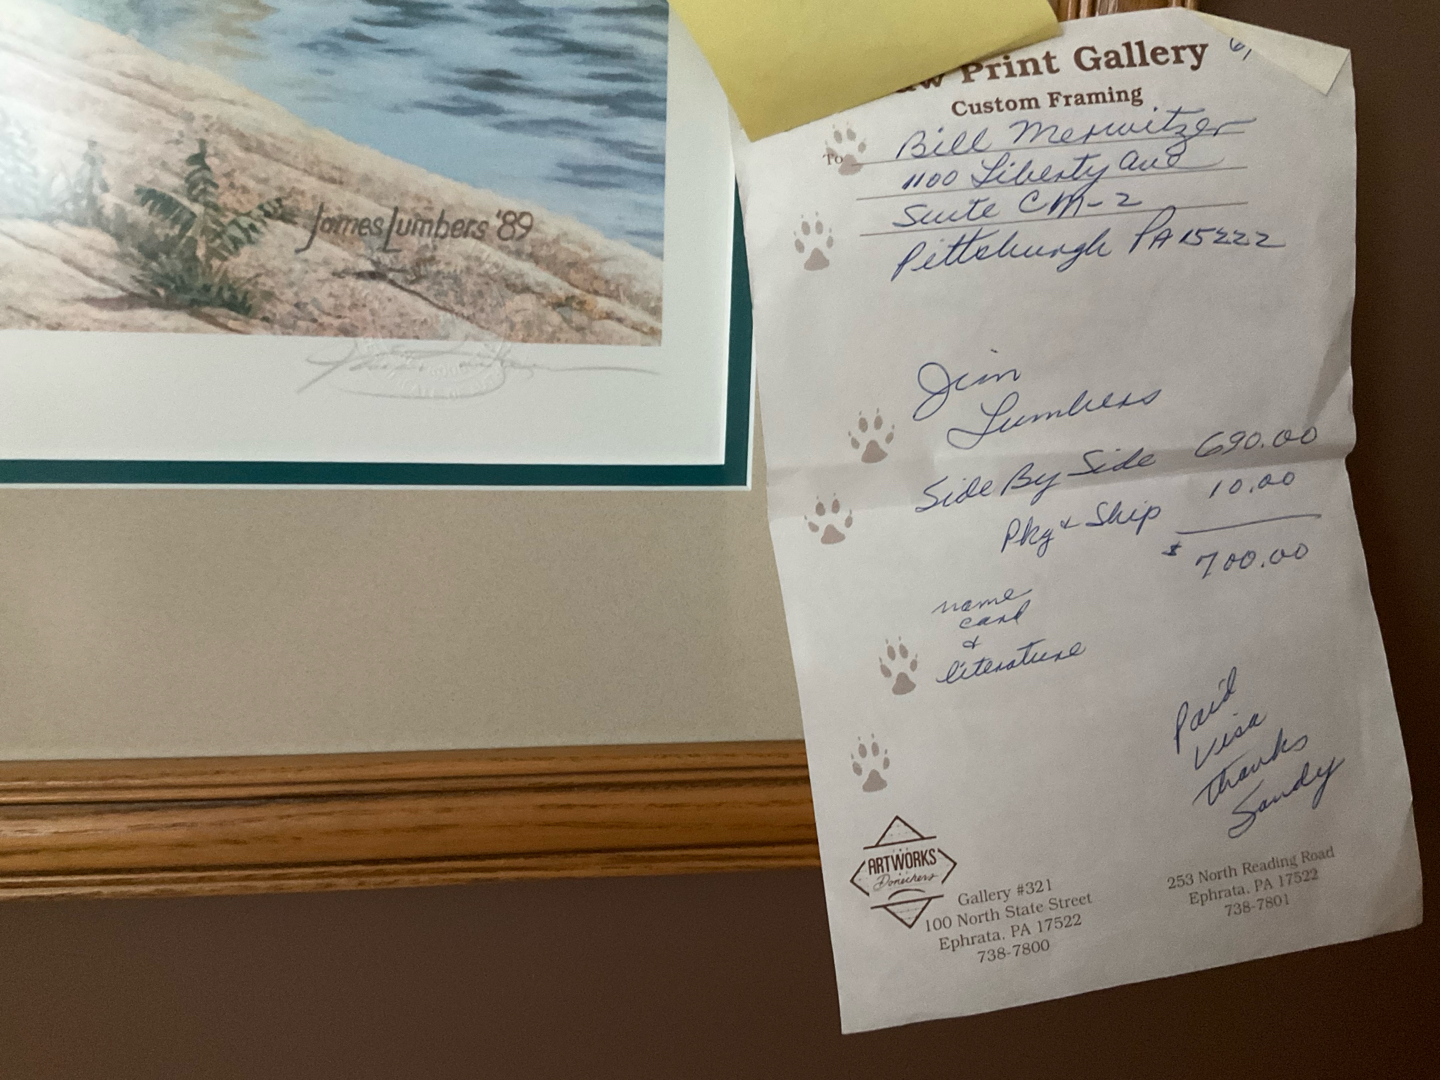 James Lumbers '89
Print Gallery
Custom Framing
To Bill Merwitzer
1100 Liberty Ave
Suite CM-2
Pittsburgh PA 15222
Jim
Lumbers
Side By Side 690.00
Pkg & Ship 10.00
$ 700.00
name
card
&
literature
Paid
Visa
Thanks
Sandy
ARTWORKS
Doneckers
Gallery #321
100 North State Street
Ephrata, PA 17522
738-7800
253 North Reading Road
Ephrata, PA 17522
738-7801